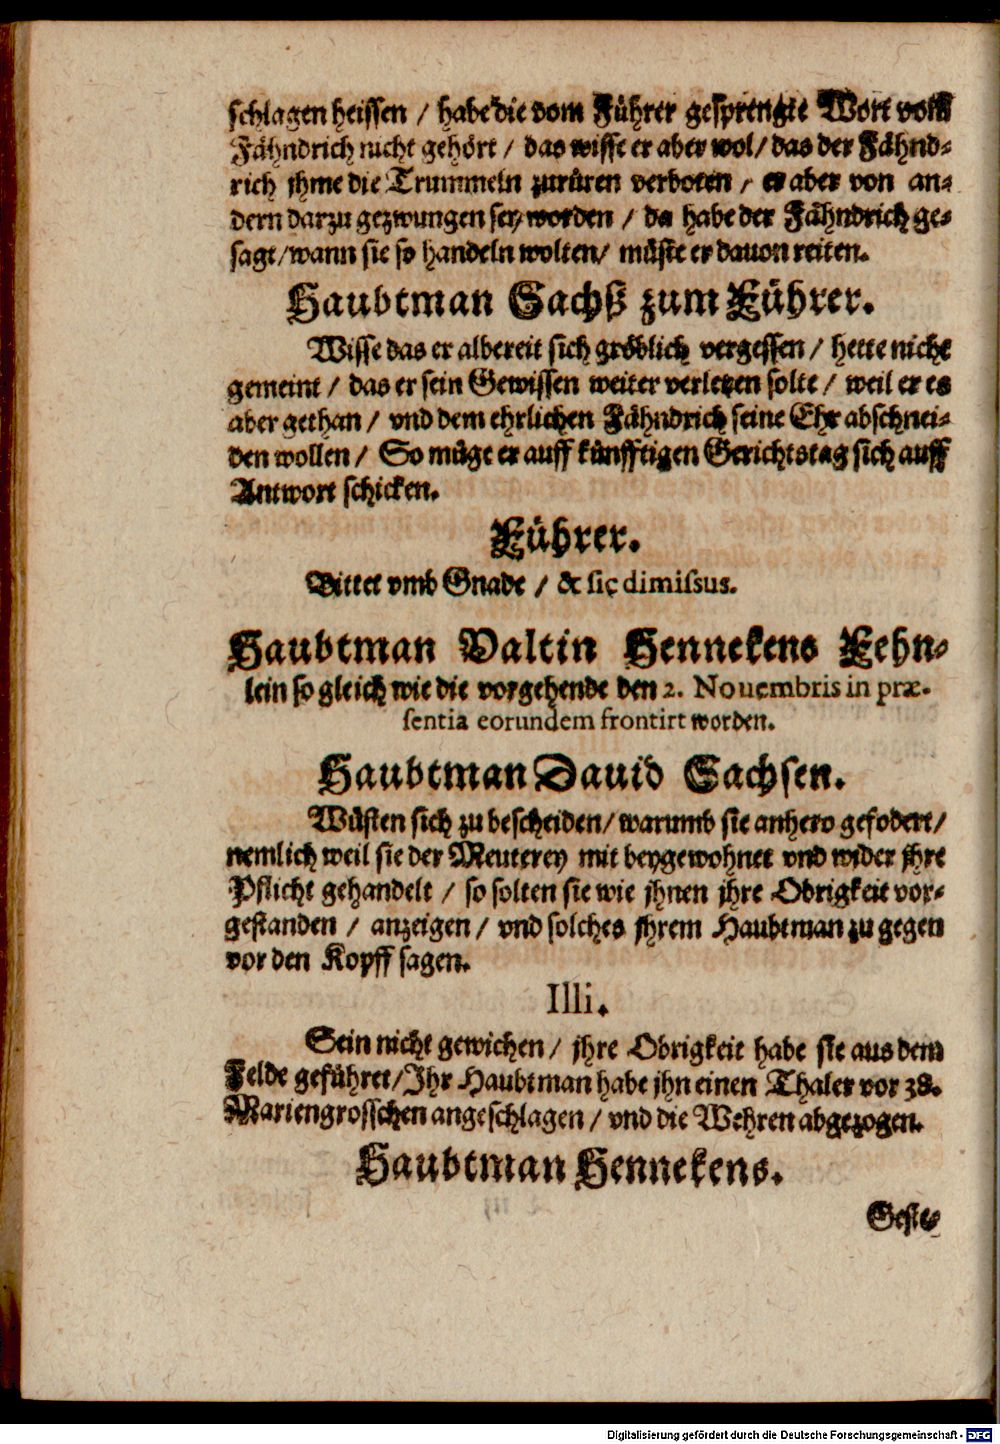 schlagen heissen / habe die vom Führer gesprengte Wort vom
Fähndrich nicht gehört / das wisse er aber wol / das der Fähnd-
rich jhme die Trummeln zurüren verboten / er aber von an-
dern darzu gezwungen sey worden / da habe der Fähndrich ge-
sagt / wann sie so handeln wolten / müste er dauon reiten.
Haubtman Sachß zum Führer.
Wisse das er albereit sich gröblich vergessen / hette nicht
gemeint / das er sein Gewissen weiter verletzen solte / weil er es
aber gethan / vnd dem ehrlichen Fähndrich seine Ehr abschnei-
den wollen / So müge er auff künfftigen Gerichtstag sich auff
Antwort schicken.
Führer.
Bittet vmb Gnade / & sic dimissus.
Haubtman Valtin Hennekens Fehn-
lein so gleich wie die vorgehende den 2. Nouembris in præ-
sentia eorundem frontirt worden.
Haubtman Dauid Sachsen.
Wüsten sich zu bescheiden / warumb sie anhero gefodert /
nemlich weil sie der Meuterey mit beygewohnet vnd wider jhre
Pflicht gehandelt / so solten sie wie jhnen jhre Obrigkeit vor-
gestanden / anzeigen / vnd solches jhrem Haubtman zu gegen
vor den Kopff sagen.
Illi.
Sein nicht gewichen / jhre Obrigkeit habe sie aus dem
Felde geführet / Jhr Haubtman habe jhn einen Thaler vor 38.
Mariengrosschen angeschlagen / vnd die Wehren abgezogen.
Haubtman Hennekens.
Geste-
Digitalisierung gefördert durch die Deutsche Forschungsgemeinschaft - DFG